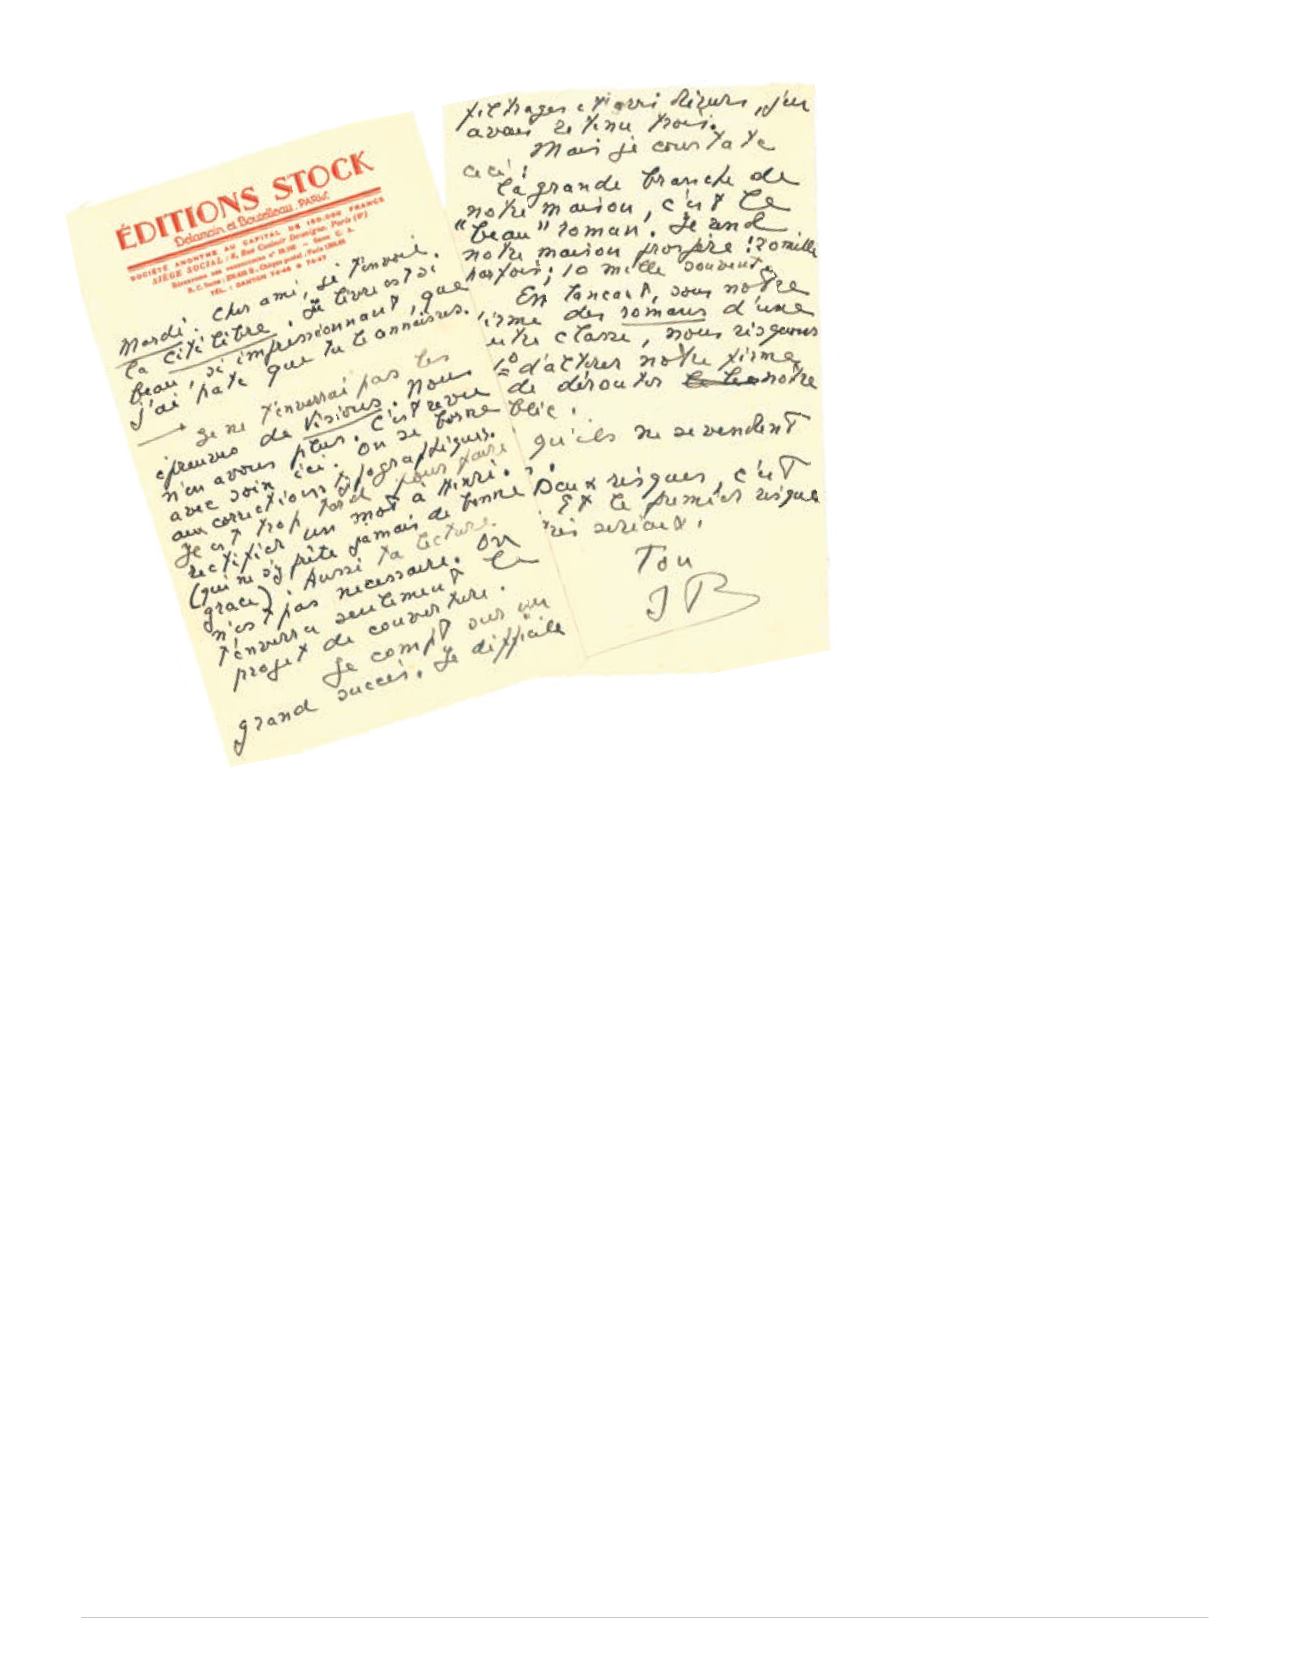 ÉDITIONS STOCK
Delamain et Boutelleau . PARIS
SOCIÉTÉ ANONYME AU CAPITAL DE FRANCS
SIÈGE SOCIAL : 6, Rue Casimir Delavigne, Paris (6e)
TÉL. : DANTON
Mardi. Cher ami, je t'envoie
la Cité libre. Le livre est si
beau, si impressionnant, que
j'ai hate que tu le connaisses.
Je ne t'enverrai pas les
épreuves de Visions. Nous
n'en avons plus. C'est revu
avec soin ici. On se borne
aux corrections typographiques.
Je est trop tard pour faire
rectifier un mot à Henri.
(qui ne s'y prête jamais de bonne
grace). Aussi ta lecture
n'est pas necessaire. On
t'enverra seulement le
projet de couverture.
Je compte sur un
grand succès. Je difficile
j'en
avais retenu trois.
Mais je constate
ceci :
La grande branche de
notre maison, c'est le
"beau" roman. Je rend
notre maison prospère ! 20 mille
parfois ; 10 mille souvent.
En lançant, sous notre
irme des romans d'une
utre classe, nous risquons
1º d'altérer notre firme
de dérouter notre
blic.
qu'ils ne se vendent
Deux risques, c'est
Et le premier risque
rès serieux.
Ton
J B